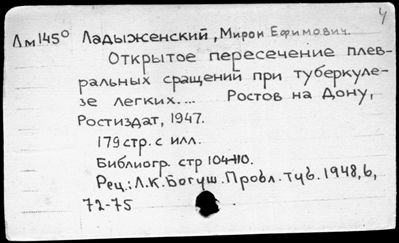 4
Лм145° Ладыженский, Мирон Ефимович.
Открытое пересечение плев-
ральных сращений при туберкуле-
зе легких.... Ростов на Дону,
Ростиздат, 1947.
179 стр. с илл.
Библиогр. стр 104-110.
Рец.: Л.К. Богуш. Пробл. туб. 1948, 6,
72-75